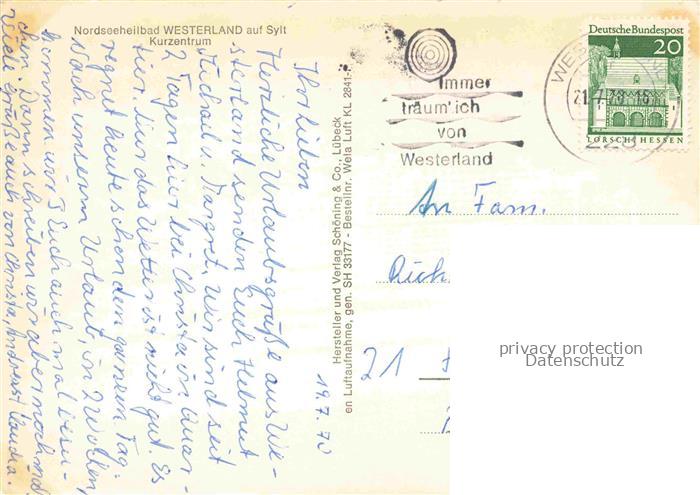 Nordseeheilbad WESTERLAND auf Sylt
Kurzentrum
Ihr Lieben
19.7.70
Herzliche Urlaubsgrüße aus We-
sterland senden Euch Helmut
Michael u. Margret. Wir sind seit
2 Tagen hier bei Christa in Quar-
tier. Nur das Wetter ist nicht gut. Es
regnet heute schon den ganzen Tag.
Nach unserm Urlaub, in 2 Wochen,
kommen wir 3 Euch auch mal besu-
chen. Dann schreiben wir aber noch mal.
Viele Grüße auch von Christa, Andreas u. Claudia.
Hersteller und Verlag Schöning & Co., Lübeck
en Luftaufnahme, gen. SH 33177 - Bestellnr. Wela Luft KL 2841-
Immer
träum' ich
von
Westerland
WES
21.7.70
Deutsche Bundespost
20
LORSCH HESSEN
An Fam.
21
privacy protection
Datenschutz